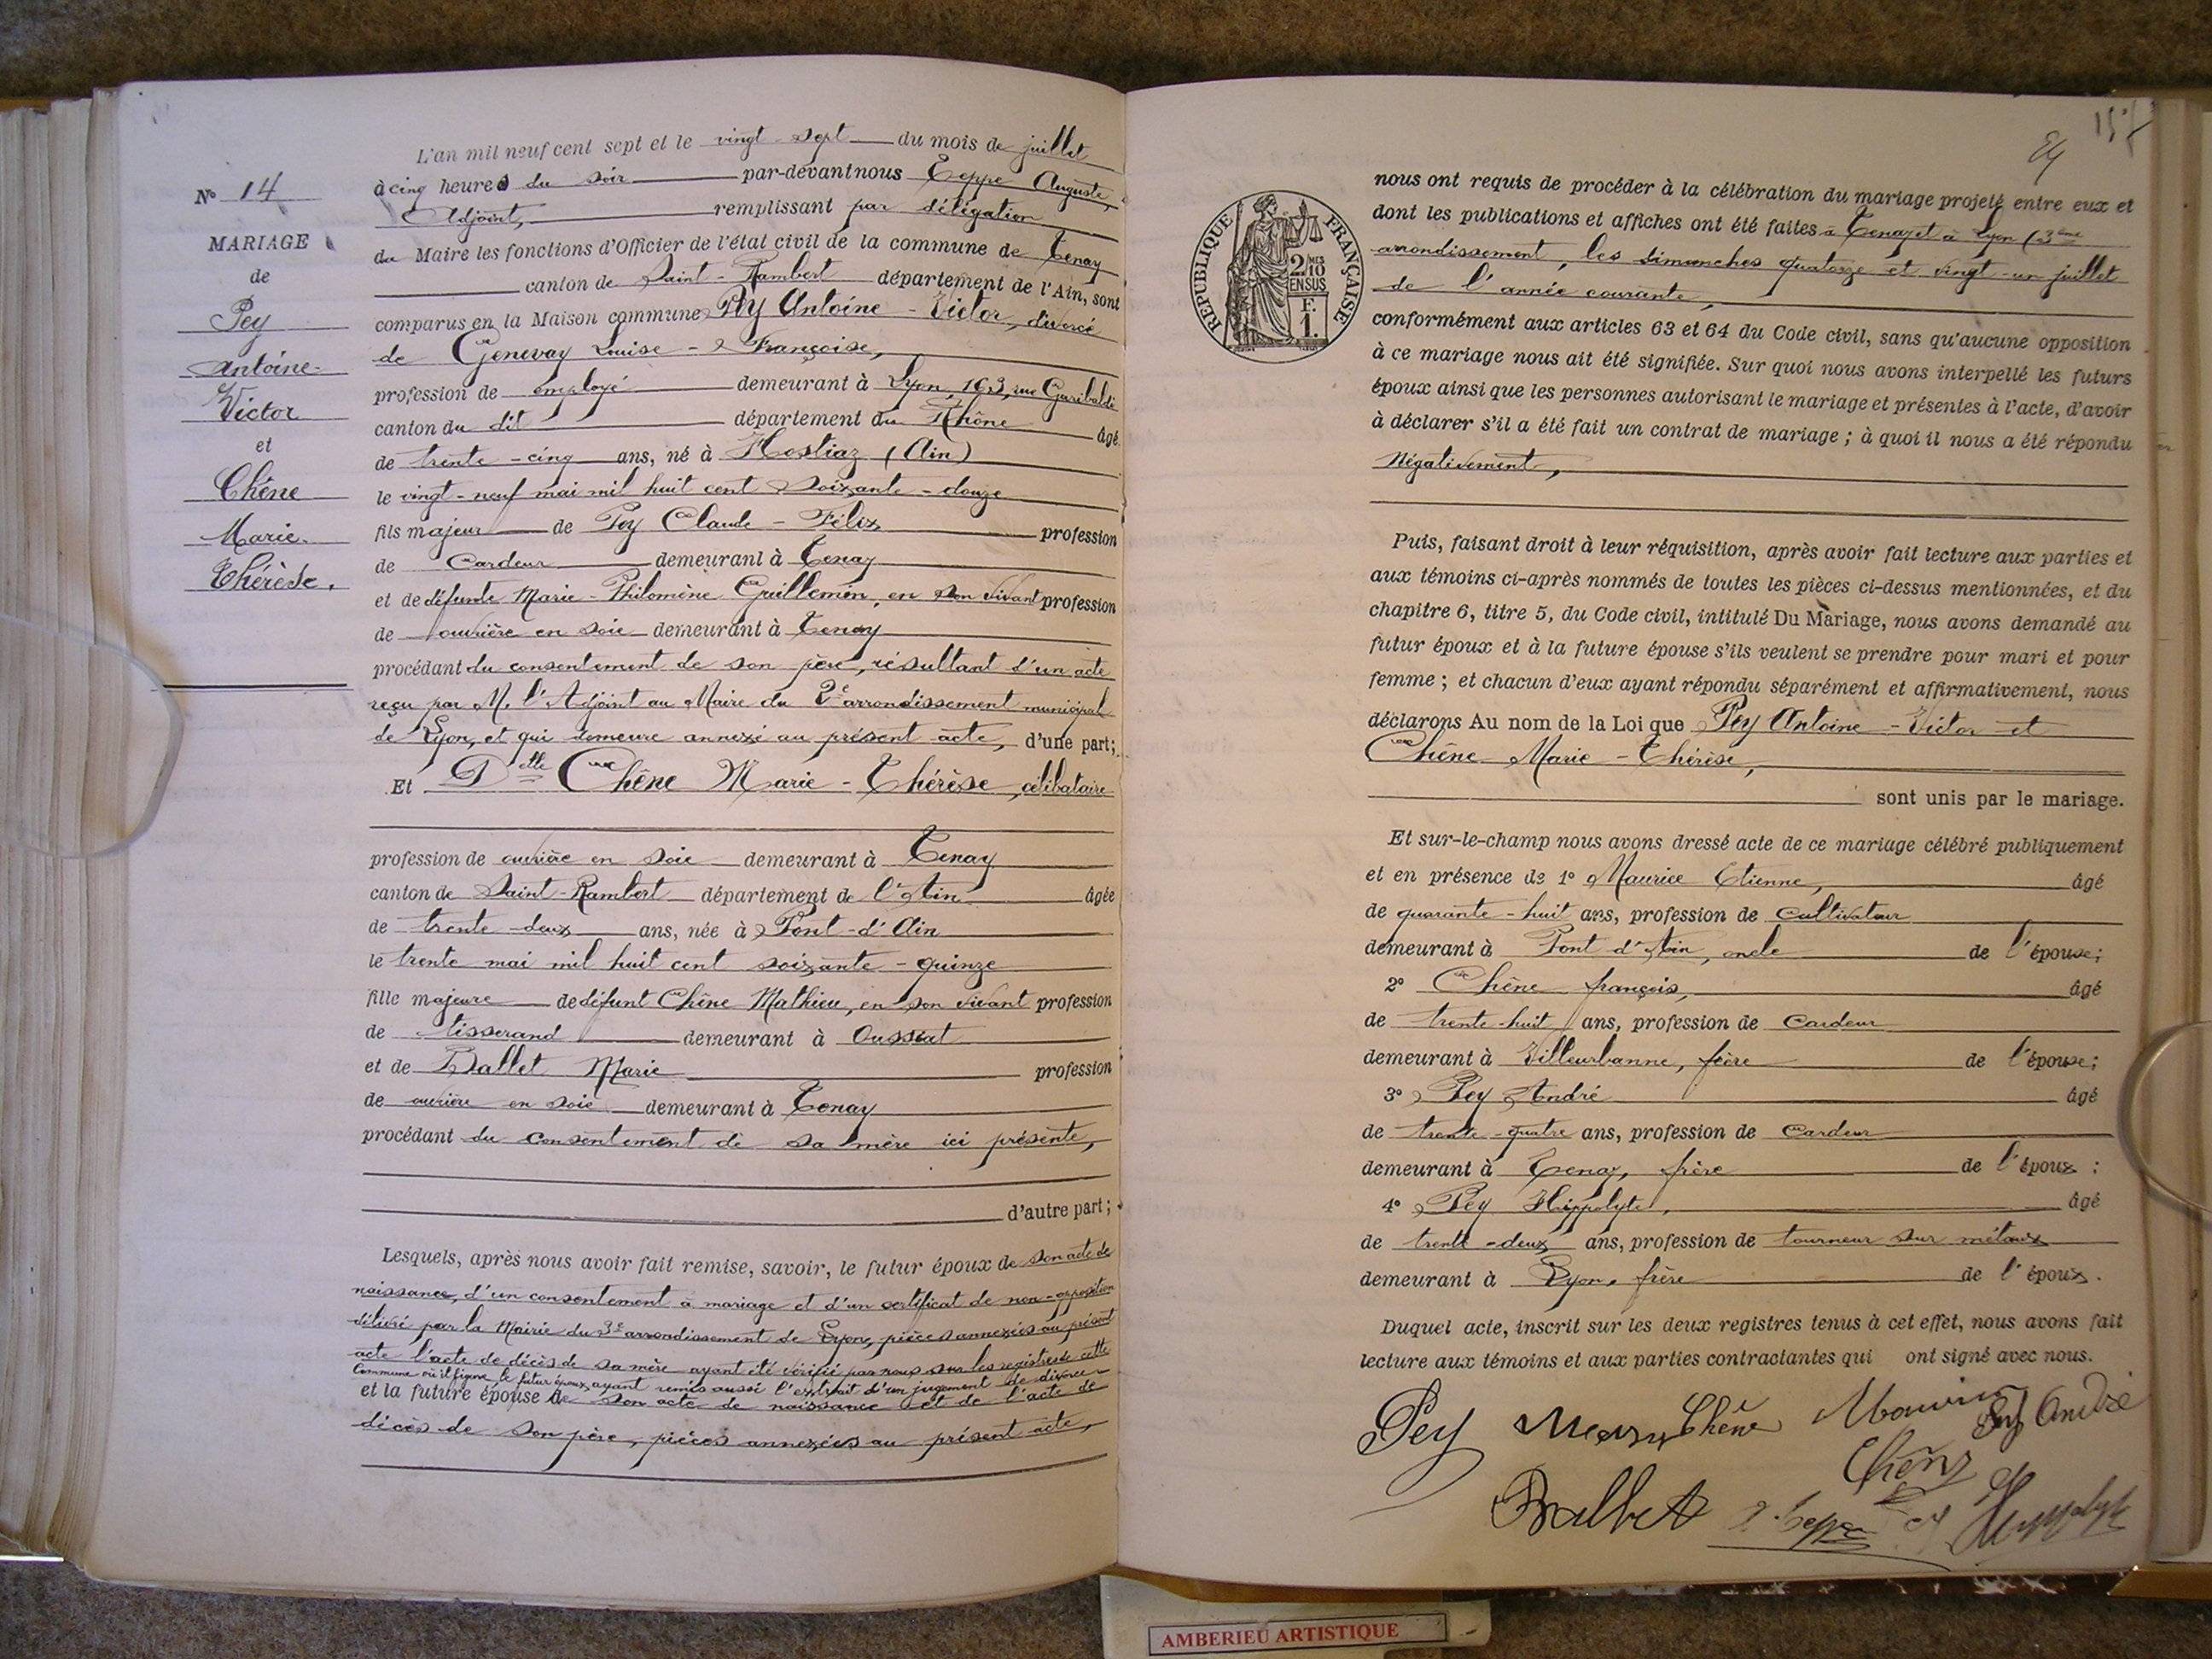 L'an mil neuf cent sept et le vingt-sept du mois de juillet
à cinq heures du soir par-devant nous Teppe Auguste,
Adjoint, remplissant par délégation
du Maire les fonctions d'Officier de l'état civil de la commune de Tenay
canton de Saint-Rambert département de l'Ain, sont
comparus en la Maison commune Pey Antoine-Victor, divorcé
de Genevay Louise-Françoise,
profession de employé demeurant à Lyon, 193, rue Garibaldi
canton du dit département du Rhône âgé
de trente-cinq ans, né à Hostiaz (Ain)
le vingt-neuf mai mil huit cent soixante-douze
fils majeur de Pey Claude-Félix profession
de Cardeur demeurant à Tenay
et de défunte Marie-Philomène Guillemin, en son vivant profession
de ouvrière en soie demeurant à Tenay
procédant du consentement de son père, résultant d'un acte
reçu par M. l'Adjoint au Maire du 2e arrondissement municipal
de Lyon, et qui demeure annexé au présent acte, d'une part;
Et Delle Chêne Marie-Thérèse, célibataire
profession de ouvrière en soie demeurant à Tenay
canton de Saint-Rambert département de l'Ain âgée
de trente-deux ans, née à Pont-d'Ain
le trente mai mil huit cent soixante-quinze
fille majeure de défunt Chêne Mathieu, en son vivant profession
de tisserand demeurant à Oussiat
et de Ballet Marie profession
de ouvrière en soie demeurant à Tenay
procédant du consentement de sa mère ici présente,
d'autre part;
Lesquels, après nous avoir fait remise, savoir, le futur époux de son acte de
naissance, d'un consentement à mariage et d'un certificat de non-opposition
délivré par la Mairie du 3e arrondissement de Lyon, pièces annexées au présent
acte l'acte de décès de sa mère ayant été vérifié par nous sur les registres de cette
Commune où il figure, le futur époux ayant remis aussi l'extrait d'un jugement de divorce
et la future épouse de son acte de naissance et de l'acte de
décès de son père, pièces annexées au présent acte,
No 14
MARIAGE
de
Pey
Antoine-
Victor
et
Chêne
Marie
Thérèse.
157
RÉPUBLIQUE FRANÇAISE
2/10 MES
EN SUS
F.
1.
nous ont requis de procéder à la célébration du mariage projeté entre eux et
dont les publications et affiches ont été faites à Tenay et à Lyon (3ème
arrondissement, les dimanches quatorze et vingt-un juillet
de l'année courante,
conformément aux articles 63 et 64 du Code civil, sans qu'aucune opposition
à ce mariage nous ait été signifiée. Sur quoi nous avons interpellé les futurs
époux ainsi que les personnes autorisant le mariage et présentes à l'acte, d'avoir
à déclarer s'il a été fait un contrat de mariage ; à quoi il nous a été répondu
Négativement,
Puis, faisant droit à leur réquisition, après avoir fait lecture aux parties et
aux témoins ci-après nommés de toutes les pièces ci-dessus mentionnées, et du
chapitre 6, titre 5, du Code civil, intitulé Du Mariage, nous avons demandé au
futur époux et à la future épouse s'ils veulent se prendre pour mari et pour
femme ; et chacun d'eux ayant répondu séparément et affirmativement, nous
déclarons Au nom de la Loi que Pey Antoine-Victor et
Chêne Marie-Thérèse,
sont unis par le mariage.
Et sur-le-champ nous avons dressé acte de ce mariage célébré publiquement
et en présence de 1° Maurice Etienne, âgé
de quarante-huit ans, profession de Cultivateur
demeurant à Pont d'Ain, oncle de l'épouse;
2° Chêne françois, âgé
de trente-huit ans, profession de Cardeur
demeurant à Villeurbanne, frère de l'épouse;
3° Pey André âgé
de trente-quatre ans, profession de Cardeur
demeurant à Tenay, frère de l'époux :
4° Pey Hippolyte, âgé
de trente-deux ans, profession de tourneur sur métaux
demeurant à Lyon, frère de l'époux.
Duquel acte, inscrit sur les deux registres tenus à cet effet, nous avons fait
lecture aux témoins et aux parties contractantes qui ont signé avec nous.
Pey Chêne Pey André
Chêne
Ballet Teppe Hyppolyte
AMBERIEU ARTISTIQUE